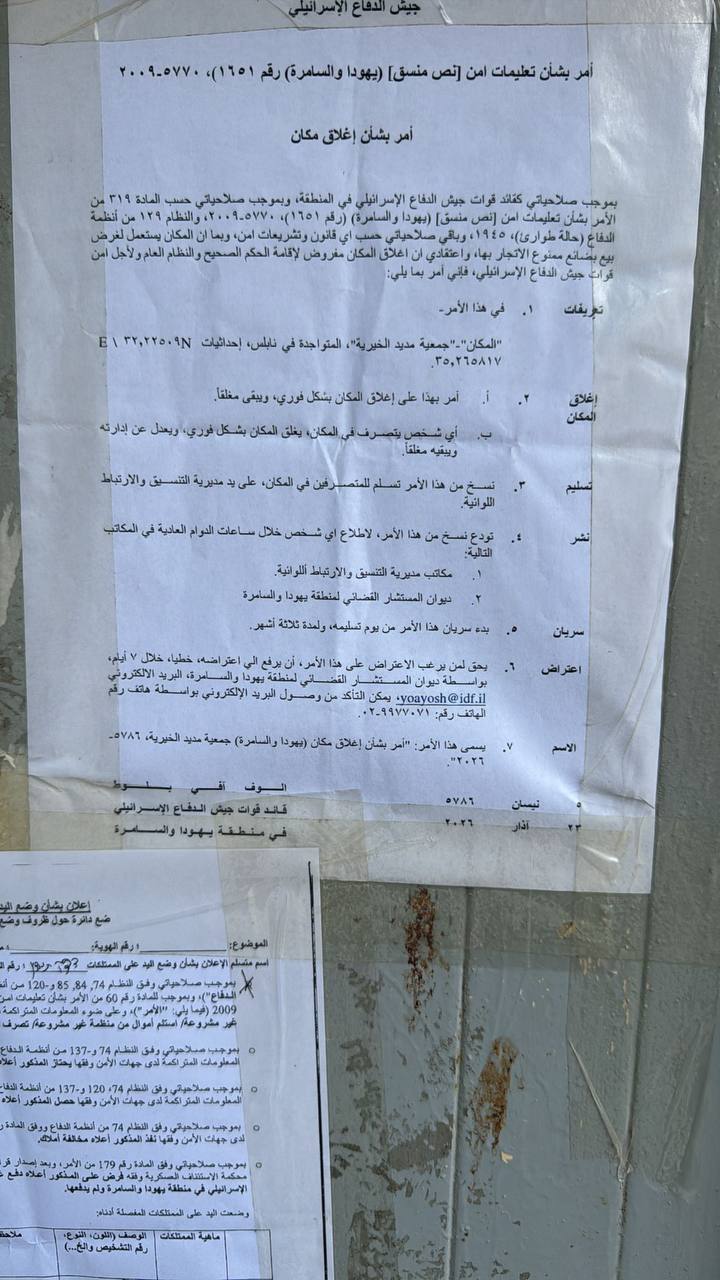 جيش الدفاع الإسرائيلي
أمر بشأن تعليمات امن [نص منسق] (يهودا والسامرة) رقم ١٦٥١)، ٥٧٧٠-٢٠٠٩
أمر بشأن إغلاق مكان
بموجب صلاحياتي كقائد قوات جيش الدفاع الإسرائيلي في المنطقة، وبموجب صلاحياتي حسب المادة ٣١٩ من
الأمر بشأن تعليمات امن [نص منسق] (يهودا والسامرة) (رقم ١٦٥١)، ٥٧٧٠-٢٠٠٩، والنظام ١٢٩ من أنظمة
الدفاع (حالة طوارئ)، ١٩٤٥، وباقي صلاحياتي حسب اي قانون وتشريعات امن، وبما ان المكان يستعمل لغرض
بيع بضائع ممنوع الاتجار بها، واعتقادي ان اغلاق المكان مفروض لإقامة الحكم الصحيح والنظام العام ولأجل امن
قوات جيش الدفاع الإسرائيلي، فإني أمر بما يلي:
تعريفات ١. في هذا الأمر-
"المكان"-"جمعية مديد الخيرية"، المتواجدة في نابلس، إحداثيات ٣٢,٢٢٥٠٩N \ E
٣٥,٢٦٥٨١٧.
إغلاق ٢. أ. أمر بهذا على إغلاق المكان بشكل فوري، ويبقى مغلقاً.
المكان
ب. أي شخص يتصرف في المكان، يغلق المكان بشكل فوري، ويعدل عن إدارته
ويبقيه مغلقاً.
تسليم ٣. نسخ من هذا الأمر تسلم للمتصرفين في المكان، على يد مديرية التنسيق والارتباط
اللوائية.
نشر ٤. تودع نسخ من هذا الأمر، لاطلاع اي شخص خلال ساعات الدوام العادية في المكاتب
التالية:
١. مكاتب مديرية التنسيق والارتباط أللوائية.
٢. ديوان المستشار القضائي لمنطقة يهودا والسامرة
سريان ٥. بدء سريان هذا الأمر من يوم تسليمه، ولمدة ثلاثة أشهر.
اعتراض ٦. يحق لمن يرغب الاعتراض على هذا الأمر، أن يرفع الي اعتراضه، خطيا، خلال ٧ أيام،
بواسطة ديوان المستشار القضائي لمنطقة يهودا والسامرة، البريد الالكتروني
yoayosh@idf.il، يمكن التأكد من وصول البريد الإلكتروني بواسطة هاتف رقم
الهاتف رقم: ٩٩٧٧٠٧١-٠٢.
الاسم ٧. يسمى هذا الأمر: "أمر بشأن إغلاق مكان (يهودا والسامرة) جمعية مديد الخيرية، ٥٧٨٦-
٢٠٢٦".
٥ نيسان ٥٧٨٦ الوف آفي بلوط
٢٣ آذار ٢٠٢٦ قائد قوات جيش الدفاع الإسرائيلي
في منطقة يهودا والسامرة
إعلان بشأن وضع اليد
ضع دائرة حول ظروف وضع
الموضوع: ؛ رقم الهوية:
اسم متسلم الإعلان بشأن وضع اليد على الممتلكات ؛ رقم
بموجب صلاحياتي وفق النظام 74, 84, 85 و-120 من
الدفاع")، وبموجب المادة رقم 60 من الأمر بشأن تعليمات
2009 (فيما يلي: "الأمر")، وعلى ضوء المعلومات المتراكمة
غير مشروعة/ استلم أموال من منظمة غير مشروعة/ تصرف
○ بموجب صلاحياتي وفق النظام 74 و-137 من أنظمة الدفاع
المعلومات المتراكمة لدى جهات الأمن وفقها يحتاز المذكور أعلاه
○ بموجب صلاحياتي وفق النظام 74، 120 و-137 من أنظمة
المعلومات المتراكمة لدى جهات الأمن وفقها حصل المذكور أعلاه
○ بموجب صلاحياتي وفق النظام 74 من أنظمة الدفاع ووفق المادة
لدى جهات الأمن وفقها نفذ المذكور أعلاه مخالفة أملاك.
○ بموجب صلاحياتي وفق المادة رقم 179 من الأمر، وبعد إصدار
محكمة الاستئناف العسكرية وفقه فرض على المذكور أعلاه دفع
الإسرائيلي في منطقة يهودا والسامرة ولم يدفعها.
وضعت اليد على الممتلكات المفصلة أدناه:
ماهية الممتلكات الوصف (اللون، النوع،
رقم التشخيص والخ...)